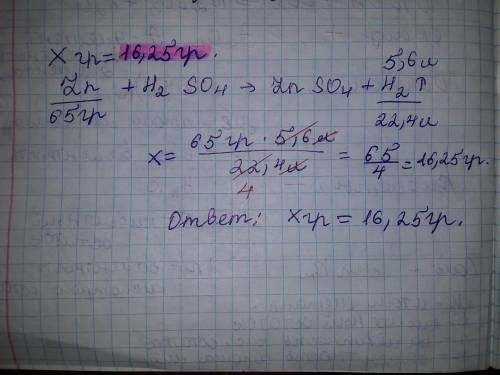 X гр = 16,25гр.
5,6л
Zn + H₂ SO₄ → Zn SO₄ + H₂↑
65гр 22,4л
x = 65 гр · 5,6 л / 22,4л = 65/4 = 16,25гр.
4
Ответ: X гр = 16,25гр.